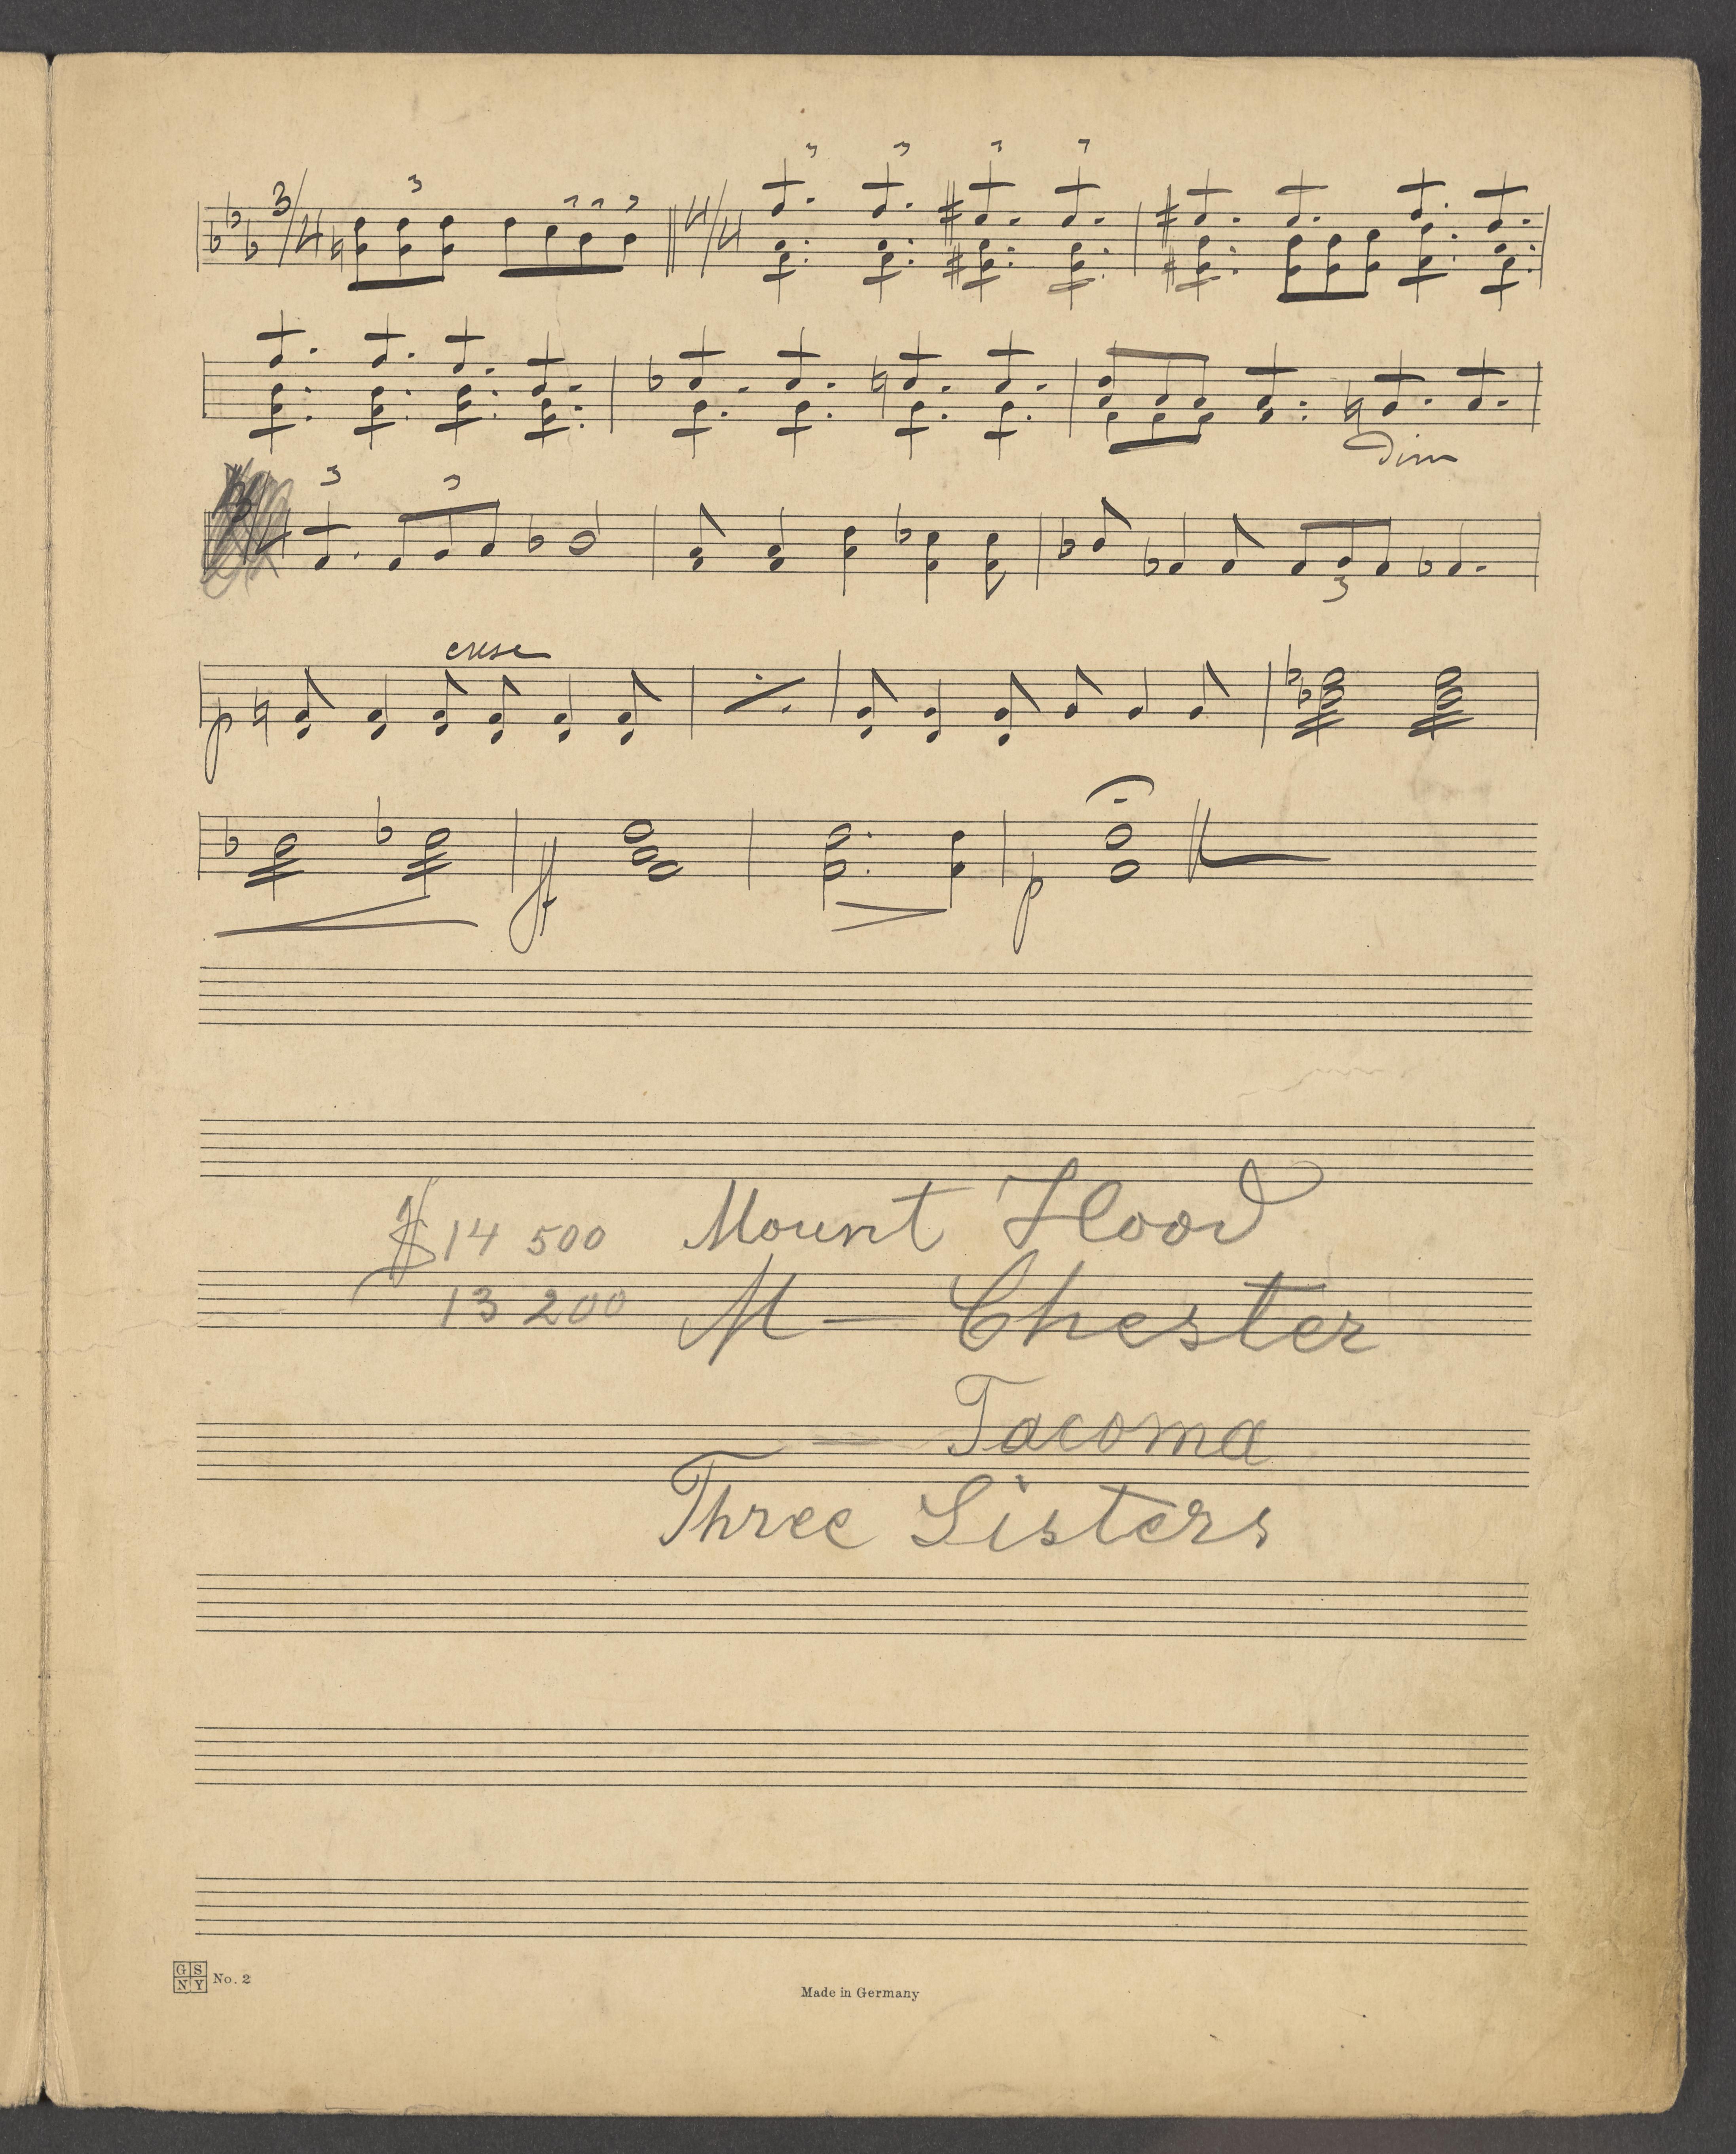 3/4 3 3
4/4 3 3
dim
3 3 3
cresc
p
ff p
$14 500 Mount Hood
13 200 M — Chester
— Tacoma
Three Sisters
G S N Y No. 2
Made in Germany